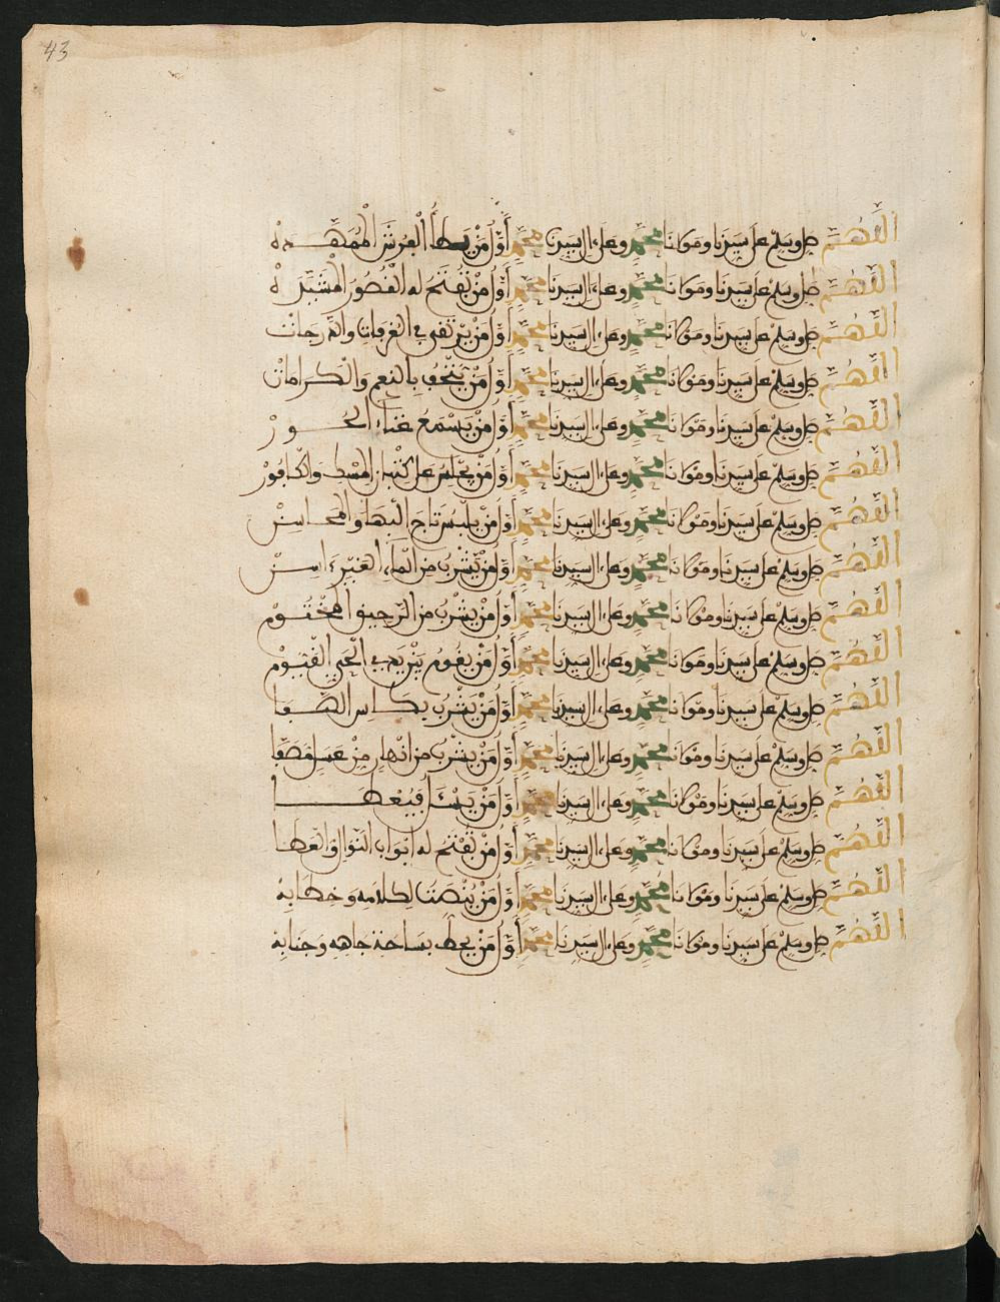 43
اللهم صل وسلم على سيدنا ومولانا محمد وعلى ءال سيدنا محمد أول من يطأ الفرش الممهده
اللهم صل وسلم على سيدنا ومولانا محمد وعلى ءال سيدنا محمد أول من تفتح له القصور المشيده
اللهم صل وسلم على سيدنا ومولانا محمد وعلى ءال سيدنا محمد أول من يرتقي في الغرفات والدرجات
اللهم صل وسلم على سيدنا ومولانا محمد وعلى ءال سيدنا محمد أول من يتحف بالنعم والكرامات
اللهم صل وسلم على سيدنا ومولانا محمد وعلى ءال سيدنا محمد أول من يسمع غناء الحور
اللهم صل وسلم على سيدنا ومولانا محمد وعلى ءال سيدنا محمد أول من يجلس على كثبان المسك والكافور
اللهم صل وسلم على سيدنا ومولانا محمد وعلى ءال سيدنا محمد أول من يلبس تاج البهاء والمحاسن
اللهم صل وسلم على سيدنا ومولانا محمد وعلى ءال سيدنا محمد أول من يشرب من الماء الغير ءاسن
اللهم صل وسلم على سيدنا ومولانا محمد وعلى ءال سيدنا محمد أول من يشرب من الرحيق المختوم
اللهم صل وسلم على سيدنا ومولانا محمد وعلى ءال سيدنا محمد أول من يقوم بين يدي الحي القيوم
اللهم صل وسلم على سيدنا ومولانا محمد وعلى ءال سيدنا محمد أول من يشرب بكاس الصفا
اللهم صل وسلم على سيدنا ومولانا محمد وعلى ءال سيدنا محمد أول من يشرب من انهار من عسل مصفا
اللهم صل وسلم على سيدنا ومولانا محمد وعلى ءال سيدنا محمد أول من يسئل فيعطا
اللهم صل وسلم على سيدنا ومولانا محمد وعلى ءال سيدنا محمد أول من تفتح له ابواب النوال والعطا
اللهم صل وسلم على سيدنا ومولانا محمد وعلى ءال سيدنا محمد أول من ينصت لكلامه وخطابه
اللهم صل وسلم على سيدنا ومولانا محمد وعلى ءال سيدنا محمد أول من يحط بساحة جاهه وجنابه